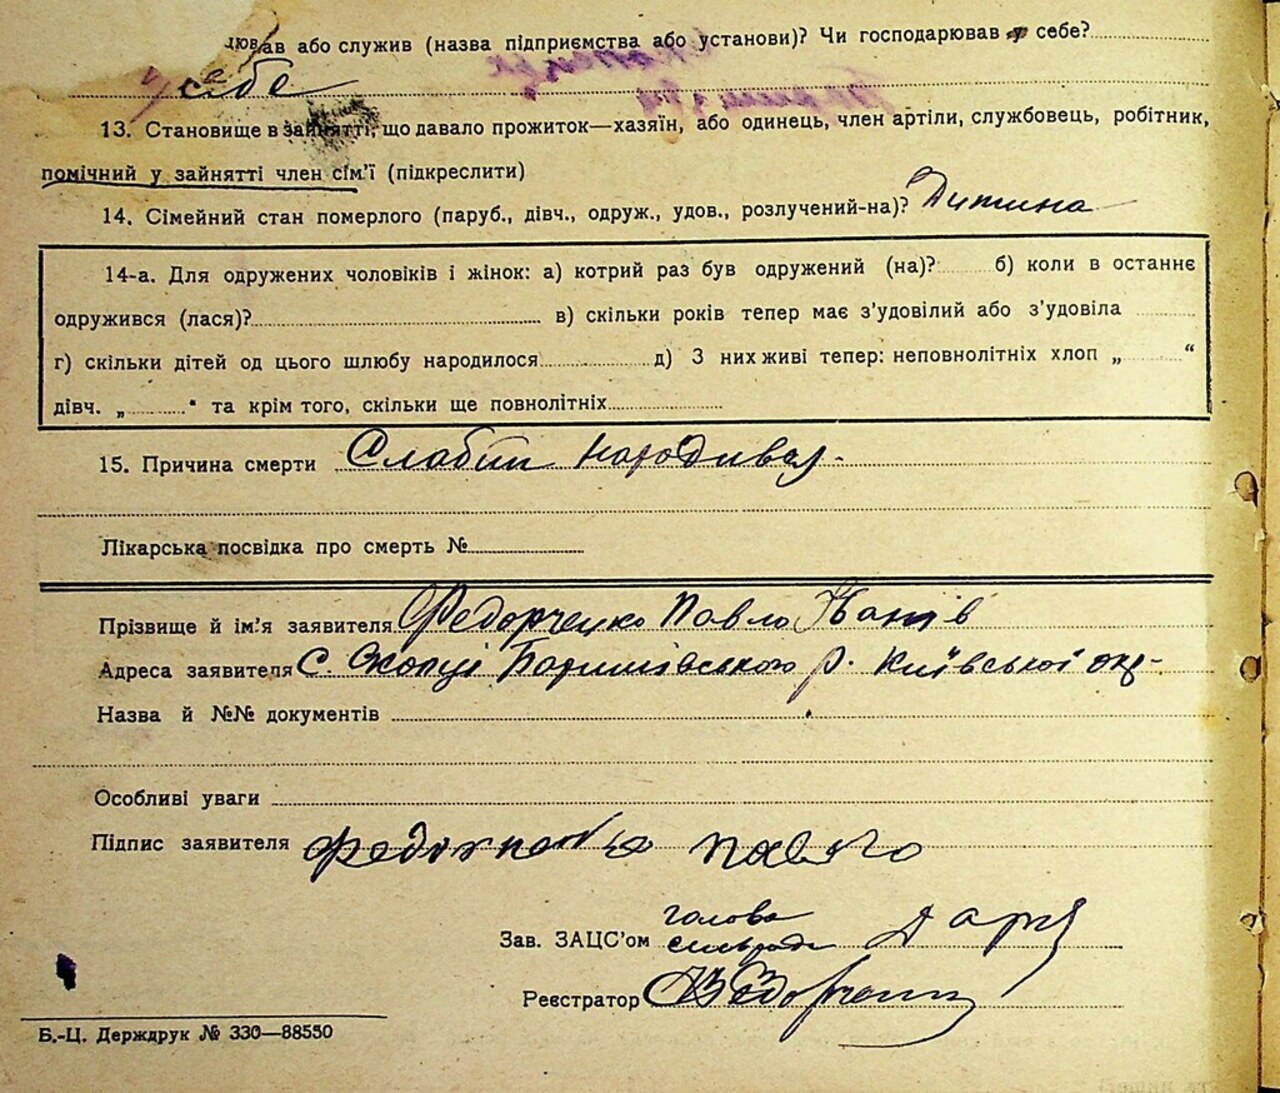 цював або служив (назва підприємства або установи)? Чи господарював у себе?
у себе
13. Становище в зайнятті, що давало прожиток—хазяїн, або одинець, член артіли, службовець, робітник,
помічний у зайнятті член сім'ї (підкреслити)
14. Сімейний стан померлого (паруб., дівч., одруж., удов., розлучений-на)? Дитина
14-а. Для одружених чоловіків і жінок: а) котрий раз був одружений (на)? б) коли в останнє
одружився (лася)? в) скільки років тепер має з'удовілий або з'удовіла
г) скільки дітей од цього шлюбу народилося д) З них живі тепер: неповнолітніх хлоп „ “
дівч. „ “ та крім того, скільки ще повнолітніх
15. Причина смерти Слабий народився
Лікарська посвідка про смерть №
Прізвище й ім'я заявителя Федорченко Павло Іванів
Адреса заявителя С. Скопці Баришівського р. Київської окр-
Назва й №№ документів
Особливі уваги
Підпис заявителя Павло
голова
Зав. ЗАЦС'ом сільради
Реєстратор Федорченко
Б.-Ц. Держдрук № 330—88550